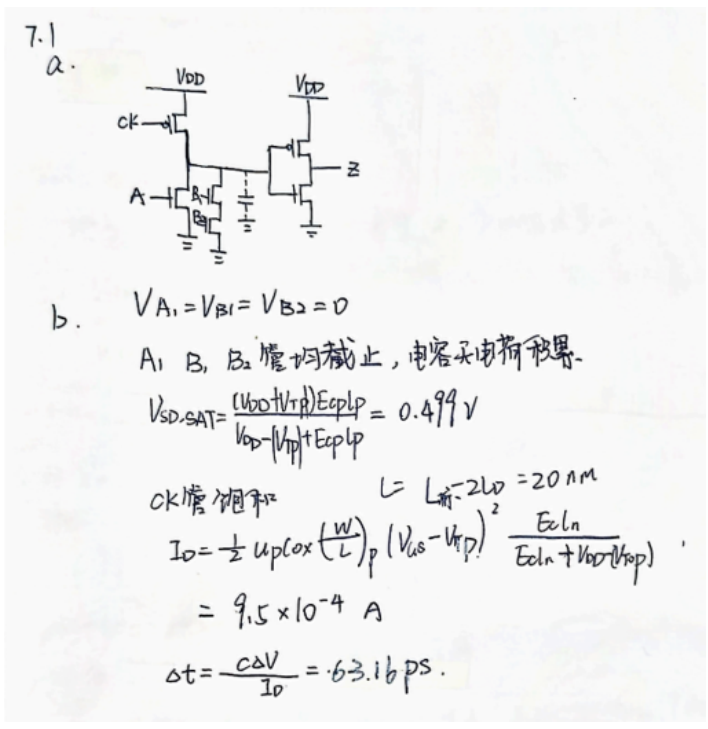 7.1
a.
VDD
VDD
CK
Z
A
B1
B2
b. VA1 = VB1 = VB2 = 0
A1 B1 B2管均截止，电容无电荷积累.
VSD.SAT = (VDD+VTP)EcpLp / VDD-|VTP|+EcpLp = 0.499V
CK管饱和 L = L标-2LD = 20nm
ID = 1/2 upCox (W/L)p (VGS-VTP)² EcLn / EcLn+VDD-|VTop|
= 9.5×10-4 A
Δt = CΔV / ID = 63.16ps.